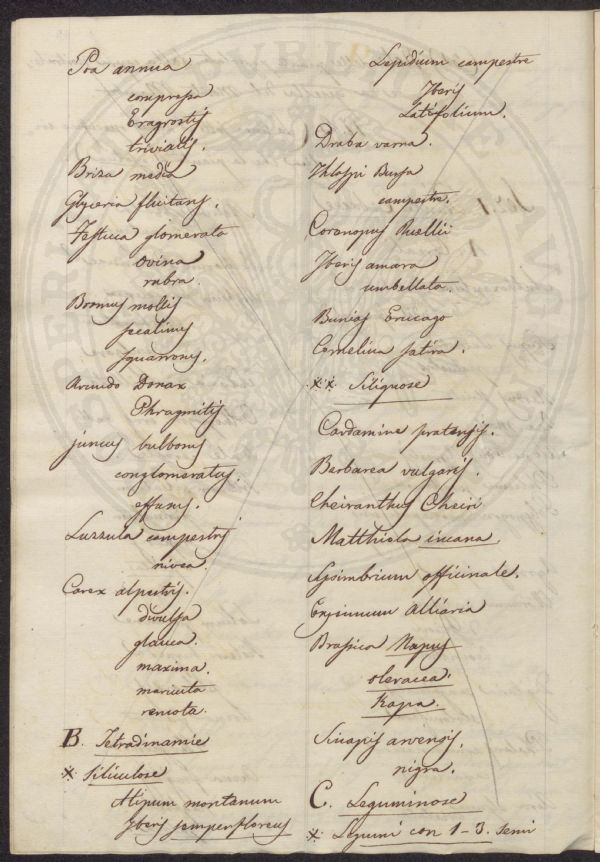 Poa annua
compressa
Eragrostis
trivialis.
Briza media
Glyceria fluitans.
Festuca glomerata
ovina
rubra.
Bromus mollis
secalinus
squarrosus.
Arundo Donax
Phragmitis
juncus bulbosus
conglomeratus.
effusus.
Luzzula campestris
nivea.
Carex alpestris.
divulsa
glauca.
maxima.
muricata
remota.
B. Tetradinamie
※ Siliculose
Alipum montanum
Jberis semperflorens
Lepidium campestre
Jberis
Latifolium.
Draba verna.
Thlaspi Bursa
campestre.
Coronopus Ruellii
Jberis amara
umbellata.
Bunias Erucago
Camelina sativa.
※ ※ Siliquose
Cardamine pratensis.
Barbarea vulgaris.
Cheiranthus Cheiri
Matthiola incana.
Sysimbrium officinale.
Erysimum Alliaria
Brassica Napus
oleracea.
Rapa.
Sinapis arvensis.
nigra.
C. Leguminose
※ Legumi con 1-3. semi